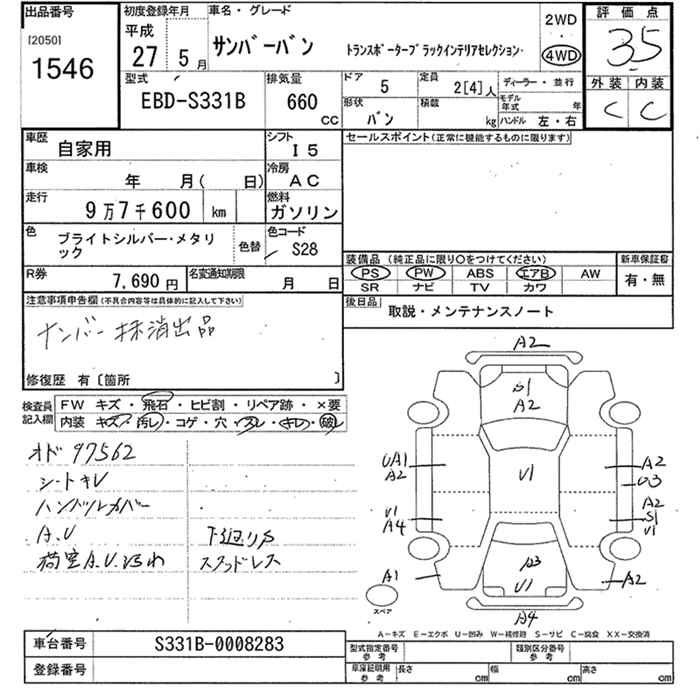 出品番号
[2050]
1546
初度登録年月
平成
27年5月
車名・グレード
サンバーバン
トランスポーターブラックインテリアセレクション
2WD
4WD
評価点
3.5
外装 内装
C C
型式
EBD-S331B
排気量
660
CC
ドア
5
定員
2[4]人
ディーラー・並行
形状
バン
積載
kg
モデル年式 年
ハンドル 左・右
車歴
自家用
シフト
I5
セールスポイント(正常に機能するものに限ります)
車検
年 月( 日)
冷房
AC
走行
9万7千600 km
燃料
ガソリン
色
ブライトシルバー・メタリ
ック
色替
色コード
S28
装備品(純正品に限り○をつけてください)
新車保証書
PS PW ABS エアB AW
SR ナビ TV カワ
有・無
R券
7,690円
名変通知期限
月 日
後日品
取説・メンテナンスノート
注意事項申告欄(不具合内容等は具体的に記入して下さい)
ナンバー抹消出品
修復歴 有〔箇所 〕
検査員
記入欄
FW キズ・飛石・ヒビ割・リペア跡・×要
内装 キズ・汚レ・コゲ・穴・スレ・キレ・破レ
オド 97562
シートキレ
ハンドルカバー
A.U
荷室A.U.
下廻りS
スタッドレス
A2
S1
A2
UA1
A2
U1
A2
U3
U1
A4
A2
S1
U1
A1
A3
U1
A2
スペア
A4
A-キズ E-エクボ U-凹み W-補修跡 S-サビ C-腐食 XX-交換済
車台番号
S331B-0008283
登録番号
型式指定番号
参考
類別区分番号
参考
車庫証明用
参考
長さ cm 幅 cm 高さ cm